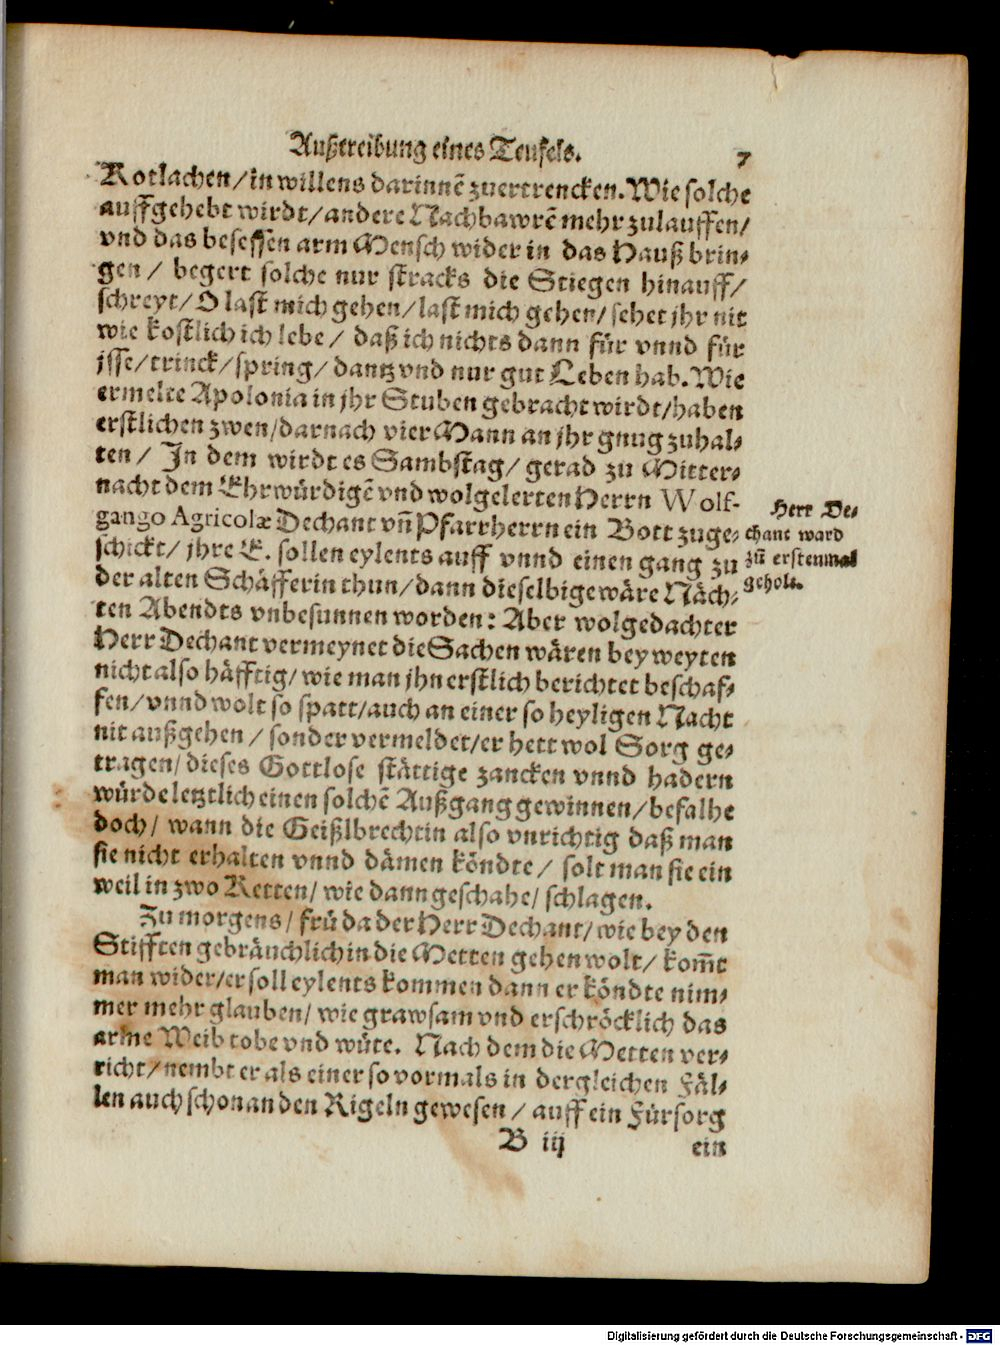 Außtreibung eines Teufels. 7
Kotlachen / in willens darinnẽ zuertrencken. Wie solche
auffgehebt wirdt / andere Nachbawrẽ mehr zulauffen /
vnd das besessen arm Mensch wider in das Hauß brin-
gen / begert solche nur stracks die Stiegen hinauff /
schreyt / O last mich gehen / last mich gehen / sehet jhr nit
wie kostlich ich lebe / daß ich nichts dann für vnnd für
jsse / trinck / spring / dantz vnd nur gut Leben hab. Wie
ermelte Apolonia in jhr Stuben gebracht wirdt / haben
erstlichen zwen / darnach vier Mann an jhr gnug zuhal-
ten / In dem wirdt es Sambstag / gerad zu Mitter-
nacht dem Ehrwürdigẽ vnd wolgelerten Herrn Wolf-
gango Agricolæ Dechant vñ Pfarrherrn ein Bott zuge-
schickt / jhre E. sollen eylents auff vnnd einen gang zu
der alten Schäfferin thun / dann dieselbige wäre Näch-
ten Abendts vnbesunnen worden: Aber wolgedachter
Herr Dechant vermeynet die Sachen wären bey weyten
nicht also häfftig / wie man jhn erstlich berichtet beschaf-
fen / vnnd wolt so spatt / auch an einer so heyligen Nacht
nit außgehen / sonder vermeldet / er hett wol Sorg ge-
tragen / dieses Gottlose stättige zancken vnnd hadern
würde letztlich einen solchẽ Außgang gewinnen / befalhe
doch / wann die Geißlbrechtin also vnrichtig daß man
sie nicht erhalten vnnd dämen köndte / solt man sie ein
weil in zwo Ketten / wie dann geschahe / schlagen.
Zu morgens / frü da der Herr Dechant / wie bey den
Stifften gebräuchlich in die Metten gehen wolt / kom̃t
man wider / er soll eylents kommen dann er köndte nim-
mer mehr glauben / wie grawsam vnd erschröcklich das
arme Weib tobe vnd wüte. Nach dem die Metten ver-
richt / nembt er als einer so vormals in dergleichen Fäl-
len auch schon an den Rigeln gewesen / auff ein Fürsorg
B iij ein
Herr De-
chant ward
zũ erstenmal
geholt.
Digitalisierung gefördert durch die Deutsche Forschungsgemeinschaft - DFG